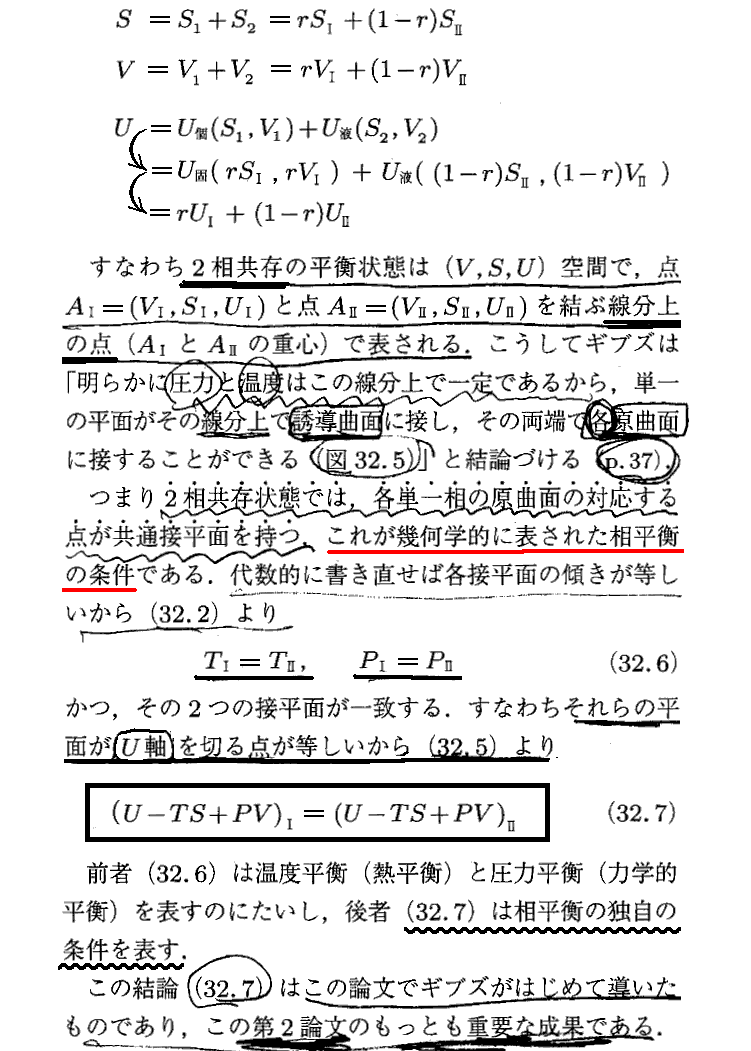 S = S₁ + S₂ = rSⅠ + (1−r)SⅡ
V = V₁ + V₂ = rVⅠ + (1−r)VⅡ
U = U個(S₁, V₁) + U液(S₂, V₂)
= U固( rSⅠ , rVⅠ ) + U液( (1−r)SⅡ , (1−r)VⅡ )
= rUⅠ + (1−r)UⅡ
すなわち2相共存の平衡状態は (V, S, U) 空間で，点
AⅠ=(VⅠ, SⅠ, UⅠ) と点 AⅡ=(VⅡ, SⅡ, UⅡ) を結ぶ線分上
の点 (AⅠ と AⅡ の重心) で表される．こうしてギブズは
「明らかに圧力と温度はこの線分上で一定であるから，単一
の平面がその線分上で誘導曲面に接し，その両端で各原曲面
に接することができる (図 32.5)」と結論づける (p.37)．
つまり2相共存状態では，各単一相の原曲面の対応する
点が共通接平面を持つ，これが幾何学的に表された相平衡
の条件である．代数的に書き直せば各接平面の傾きが等し
いから (32.2) より
TⅠ = TⅡ, PⅠ = PⅡ (32.6)
かつ，その2つの接平面が一致する．すなわちそれらの平
面が U 軸を切る点が等しいから (32.5) より
(U−TS+PV)Ⅰ = (U−TS+PV)Ⅱ (32.7)
前者 (32.6) は温度平衡 (熱平衡) と圧力平衡 (力学的
平衡) を表すのにたいし，後者 (32.7) は相平衡の独自の
条件を表す．
この結論 (32.7) はこの論文でギブズがはじめて導いた
ものであり，この第2論文のもっとも重要な成果である．